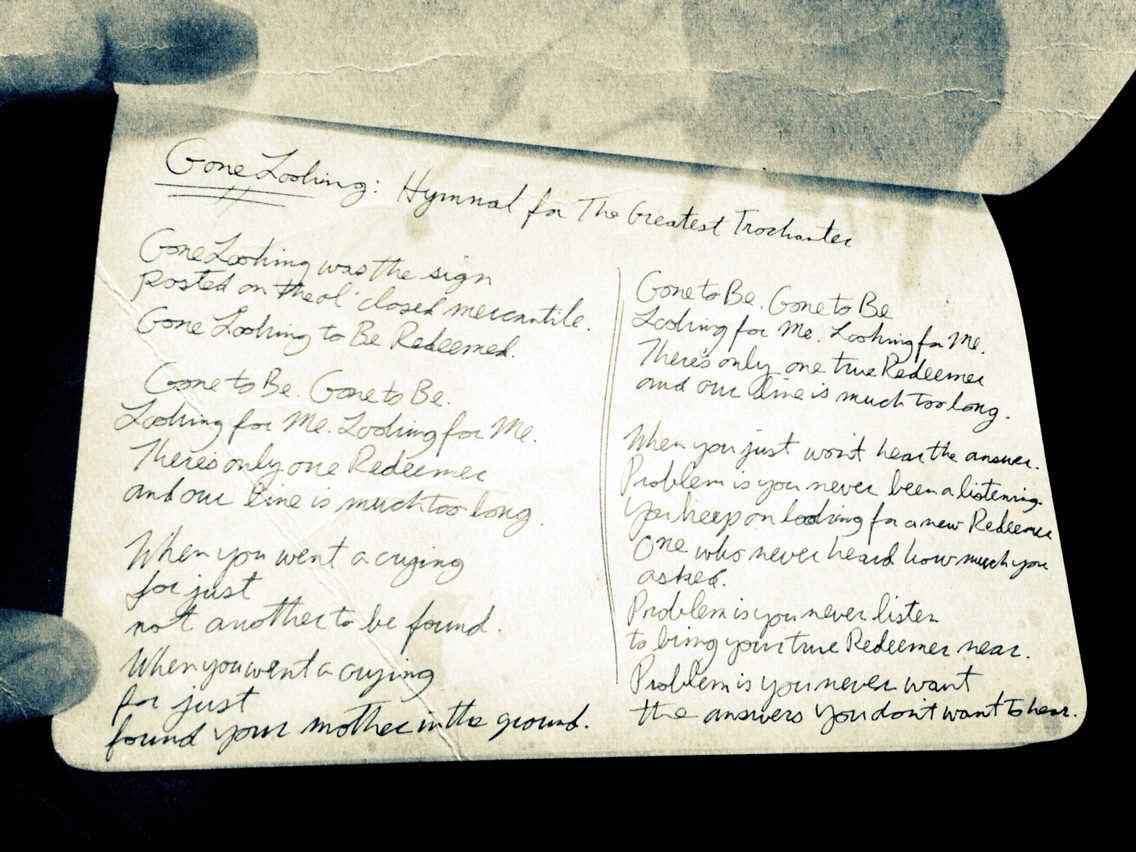 Gone Looking: Hymnal for The Greatest Trochanter
Gone Looking was the sign
posted on the ol' closed mercantile.
Gone Looking to Be Redeemed.
Gone to Be. Gone to Be.
Looking for Me. Looking for Me.
There's only one Redeemer
and our line is much too long.
When you went a crying
for just
not another to be found.
When you went a crying
for just
found your mother in the ground.
Gone to Be. Gone to Be
Looking for Me. Looking for Me.
There's only one true Redeemer
and our line is much too long.
When you just won't hear the answer.
Problem is you never been a listening
You keep on looking for a new Redeemer
One who never heard how much you
asked.
Problem is you never listen
to bring your true Redeemer near.
Problem is you never want
the answers you don't want to hear.